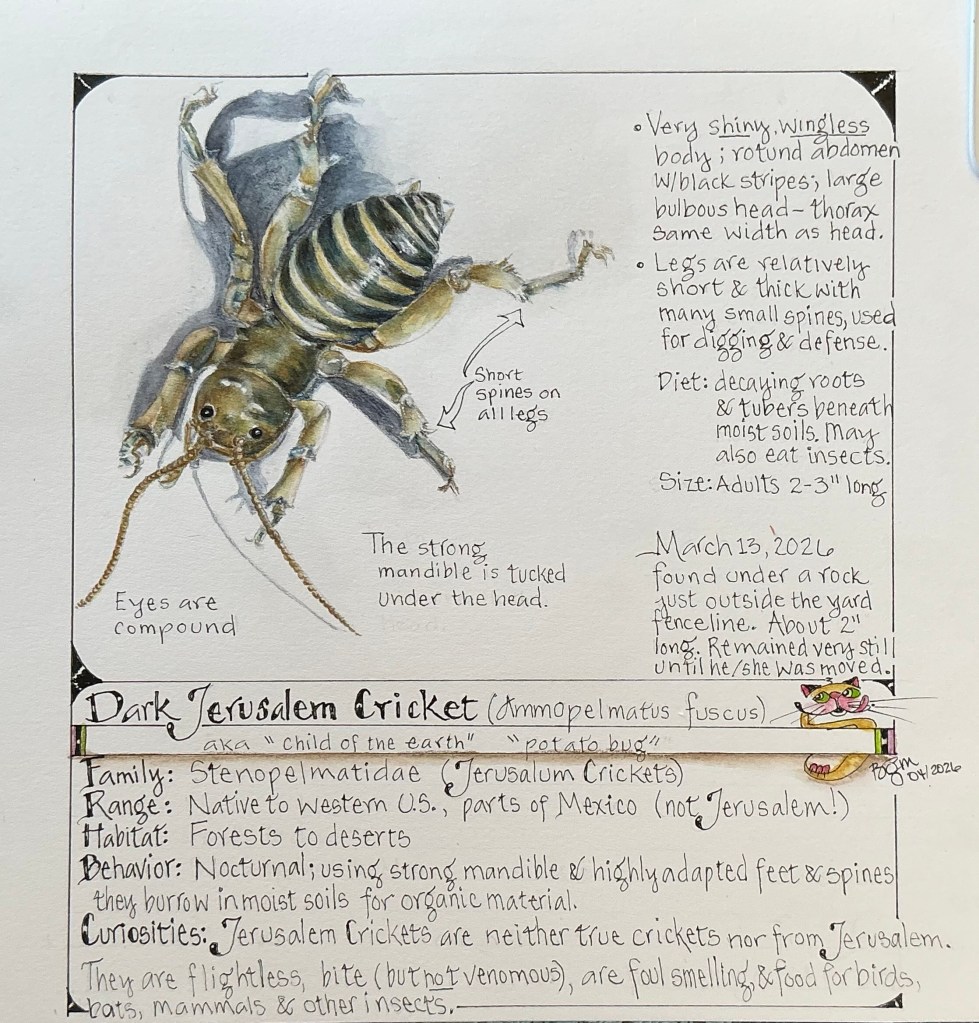 • Very shiny, wingless
body; rotund abdomen
w/black stripes; large
bulbous head - thorax
same width as head.
• Legs are relatively
short & thick with
many small spines, used
for digging & defense.
Short
spines on
all legs
Diet: decaying roots
& tubers beneath
moist soils. May
also eat insects.
Size: Adults 2-3" long
The strong
mandible is tucked
under the head.
Eyes are
compound
March 13, 2026
found under a rock
just outside the yard
fenceline. About 2"
long. Remained very still
until he/she was moved.
Dark Jerusalem Cricket (Ammopelmatus fuscus)
aka "child of the earth" "potato bug"
BGM
04/2026
Family: Stenopelmatidae (Jerusalum Crickets)
Range: Native to Western U.S., parts of Mexico (not Jerusalem!)
Habitat: Forests to deserts
Behavior: Nocturnal; using strong mandible & highly adapted feet & spines
they burrow in moist soils for organic material.
Curiosities: Jerusalem Crickets are neither true crickets nor from Jerusalem.
They are flightless, bite (but not venomous), are foul smelling, & food for birds,
bats, mammals & other insects.